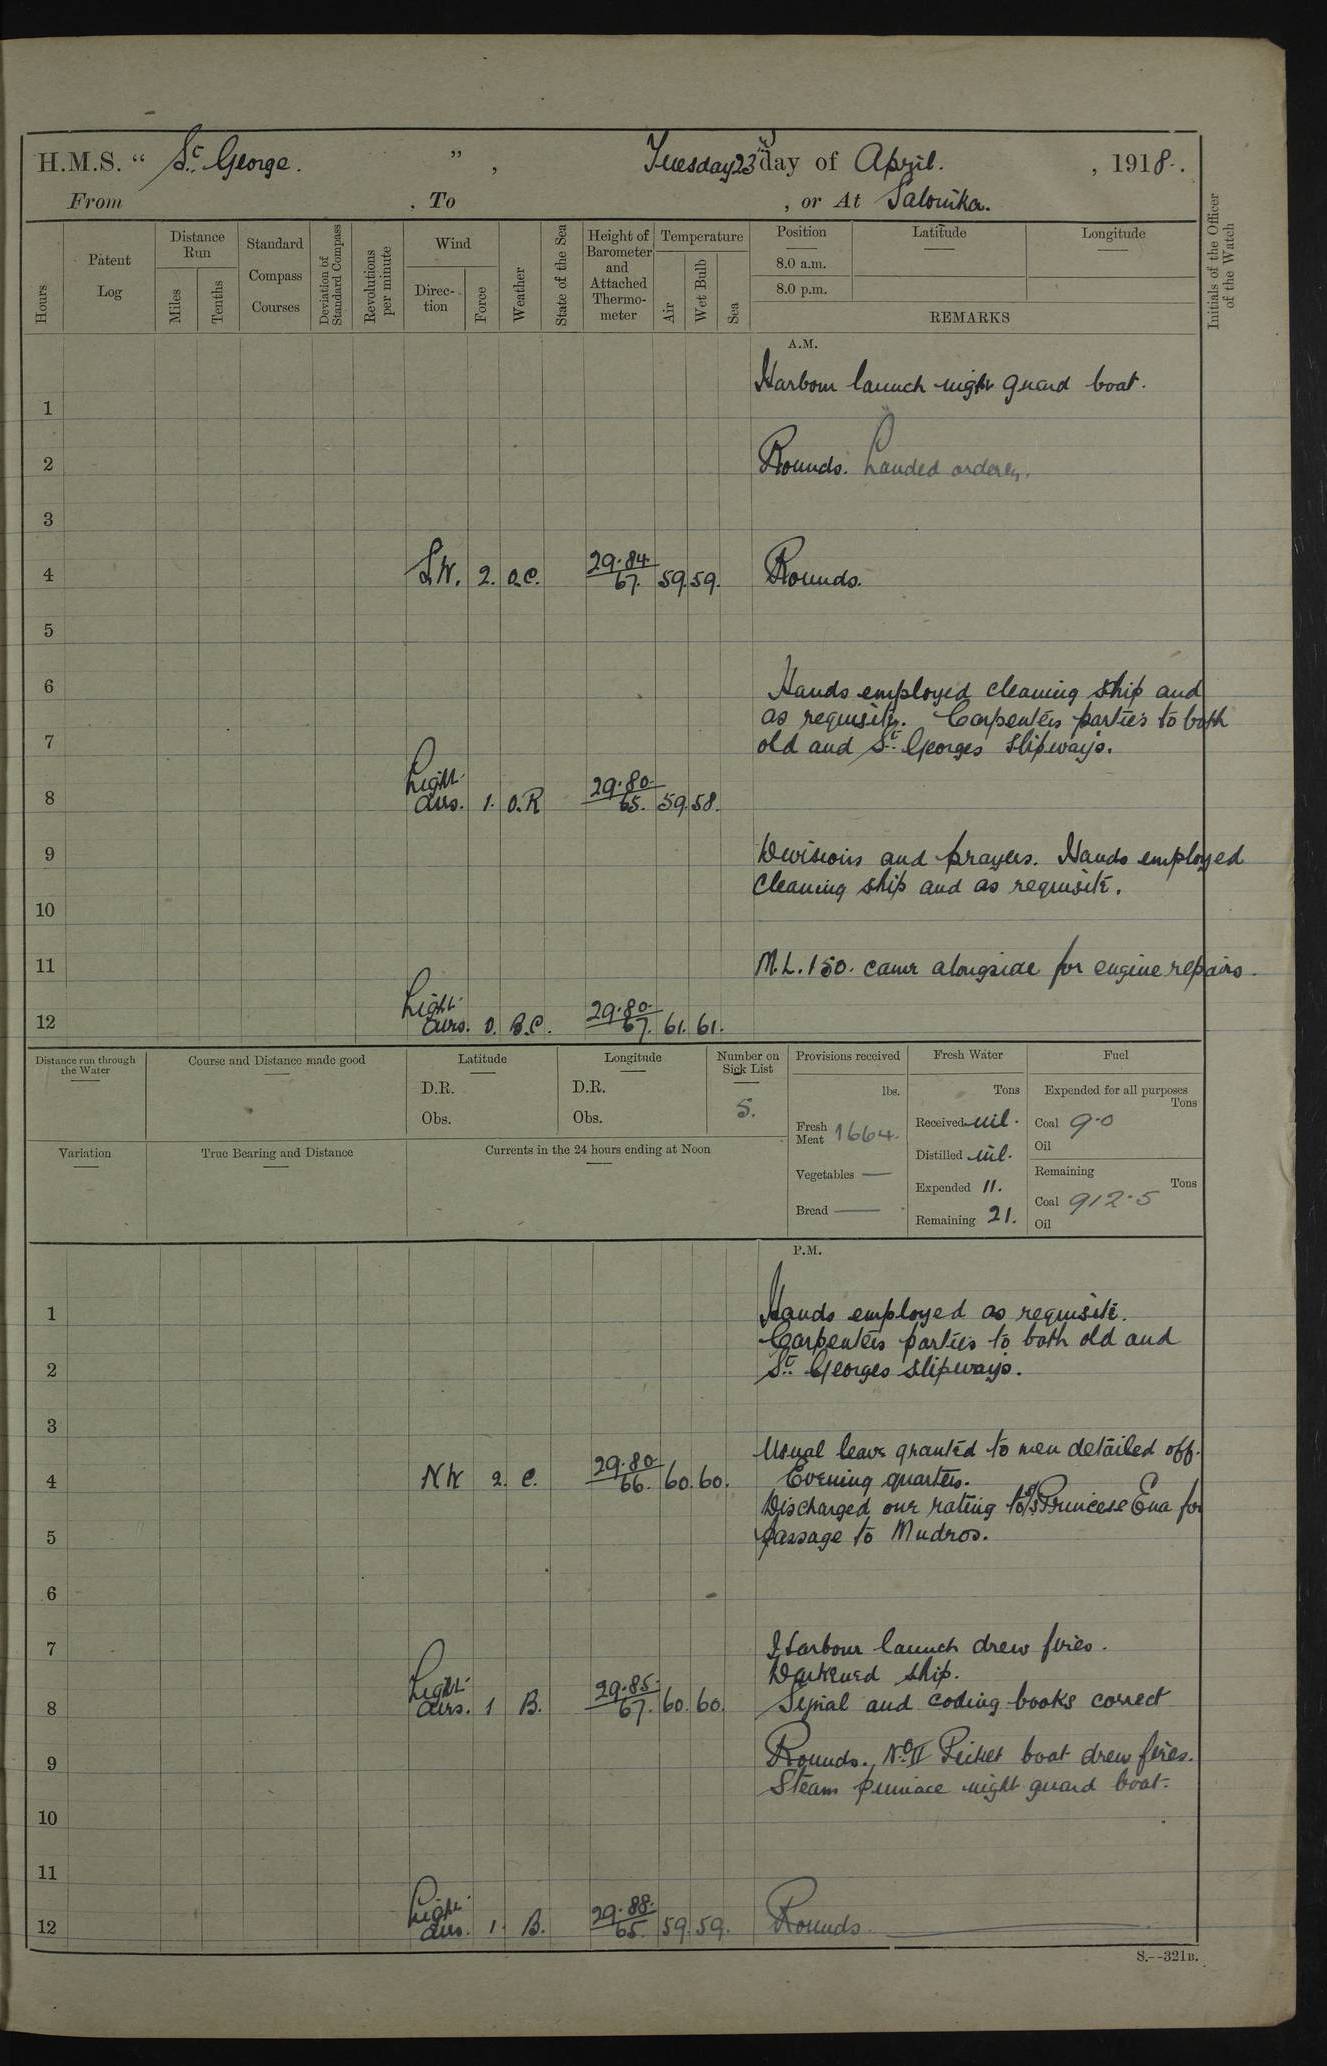 H.M.S. " St. George. ", Tuesday 23rd day of April. , 1918.
From , To , or At Salonika.
Hours
Patent Log
Distance Run
Miles
Tenths
Standard Compass Courses
Deviation of Standard Compass
Revolutions per minute
Wind
Direction
Force
Weather
State of the Sea
Height of Barometer and Attached Thermometer
Temperature
Air
Wet Bulb
Sea
Position
8.0 a.m.
8.0 p.m.
Latitude
Longitude
REMARKS
Initials of the Officer of the Watch
A.M.
Harbour launch night guard boat.
1
2 Rounds. Landed
3
4 S.W. 2. O.C. 29.84/67. 59. 59. Rounds.
5
6 Hands employed cleaning ship and
as requisite. Carpenters parties to both
7 old and St. Georges slipways.
8 Light airs. 1. O.R 29.80/65. 59. 58.
9 Divisions and prayers. Hands employed
cleaning ship and as requisite.
10
11 M.L. 150. came alongside for engine repairs.
12 Light airs. 0. B.C. 29.80/67. 61. 61.
Distance run through the Water
Course and Distance made good
Latitude
D.R.
Obs.
Longitude
D.R.
Obs.
Number on Sick List
5.
Provisions received
lbs.
Fresh Meat 1664.
Vegetables —
Bread —
Fresh Water
Tons
Received nil.
Distilled nil.
Expended 11.
Remaining 21.
Fuel
Expended for all purposes
Tons
Coal 9.0
Oil
Remaining
Tons
Coal 912.5
Oil
Variation
True Bearing and Distance
Currents in the 24 hours ending at Noon
P.M.
1 Hands employed as requisite.
Carpenters parties to both old and
2 St. Georges slipways.
3
Usual leave granted to men detailed off.
4 N W 2. C. 29.80/66. 60. 60. Evening quarters.
Discharged one rating to S/S Princess Ena for
5 passage to Mudros.
6
7 Harbour launch drew fires.
Darkened ship.
8 Light airs. 1 B. 29.85/67. 60. 60. Signal and coding books correct
9 Rounds. No. II Picket boat drew fires.
Steam pinnace night guard boat.
10
11
12 Light airs. 1. B. 29.88/65. 59. 59. Rounds
S.--321B.